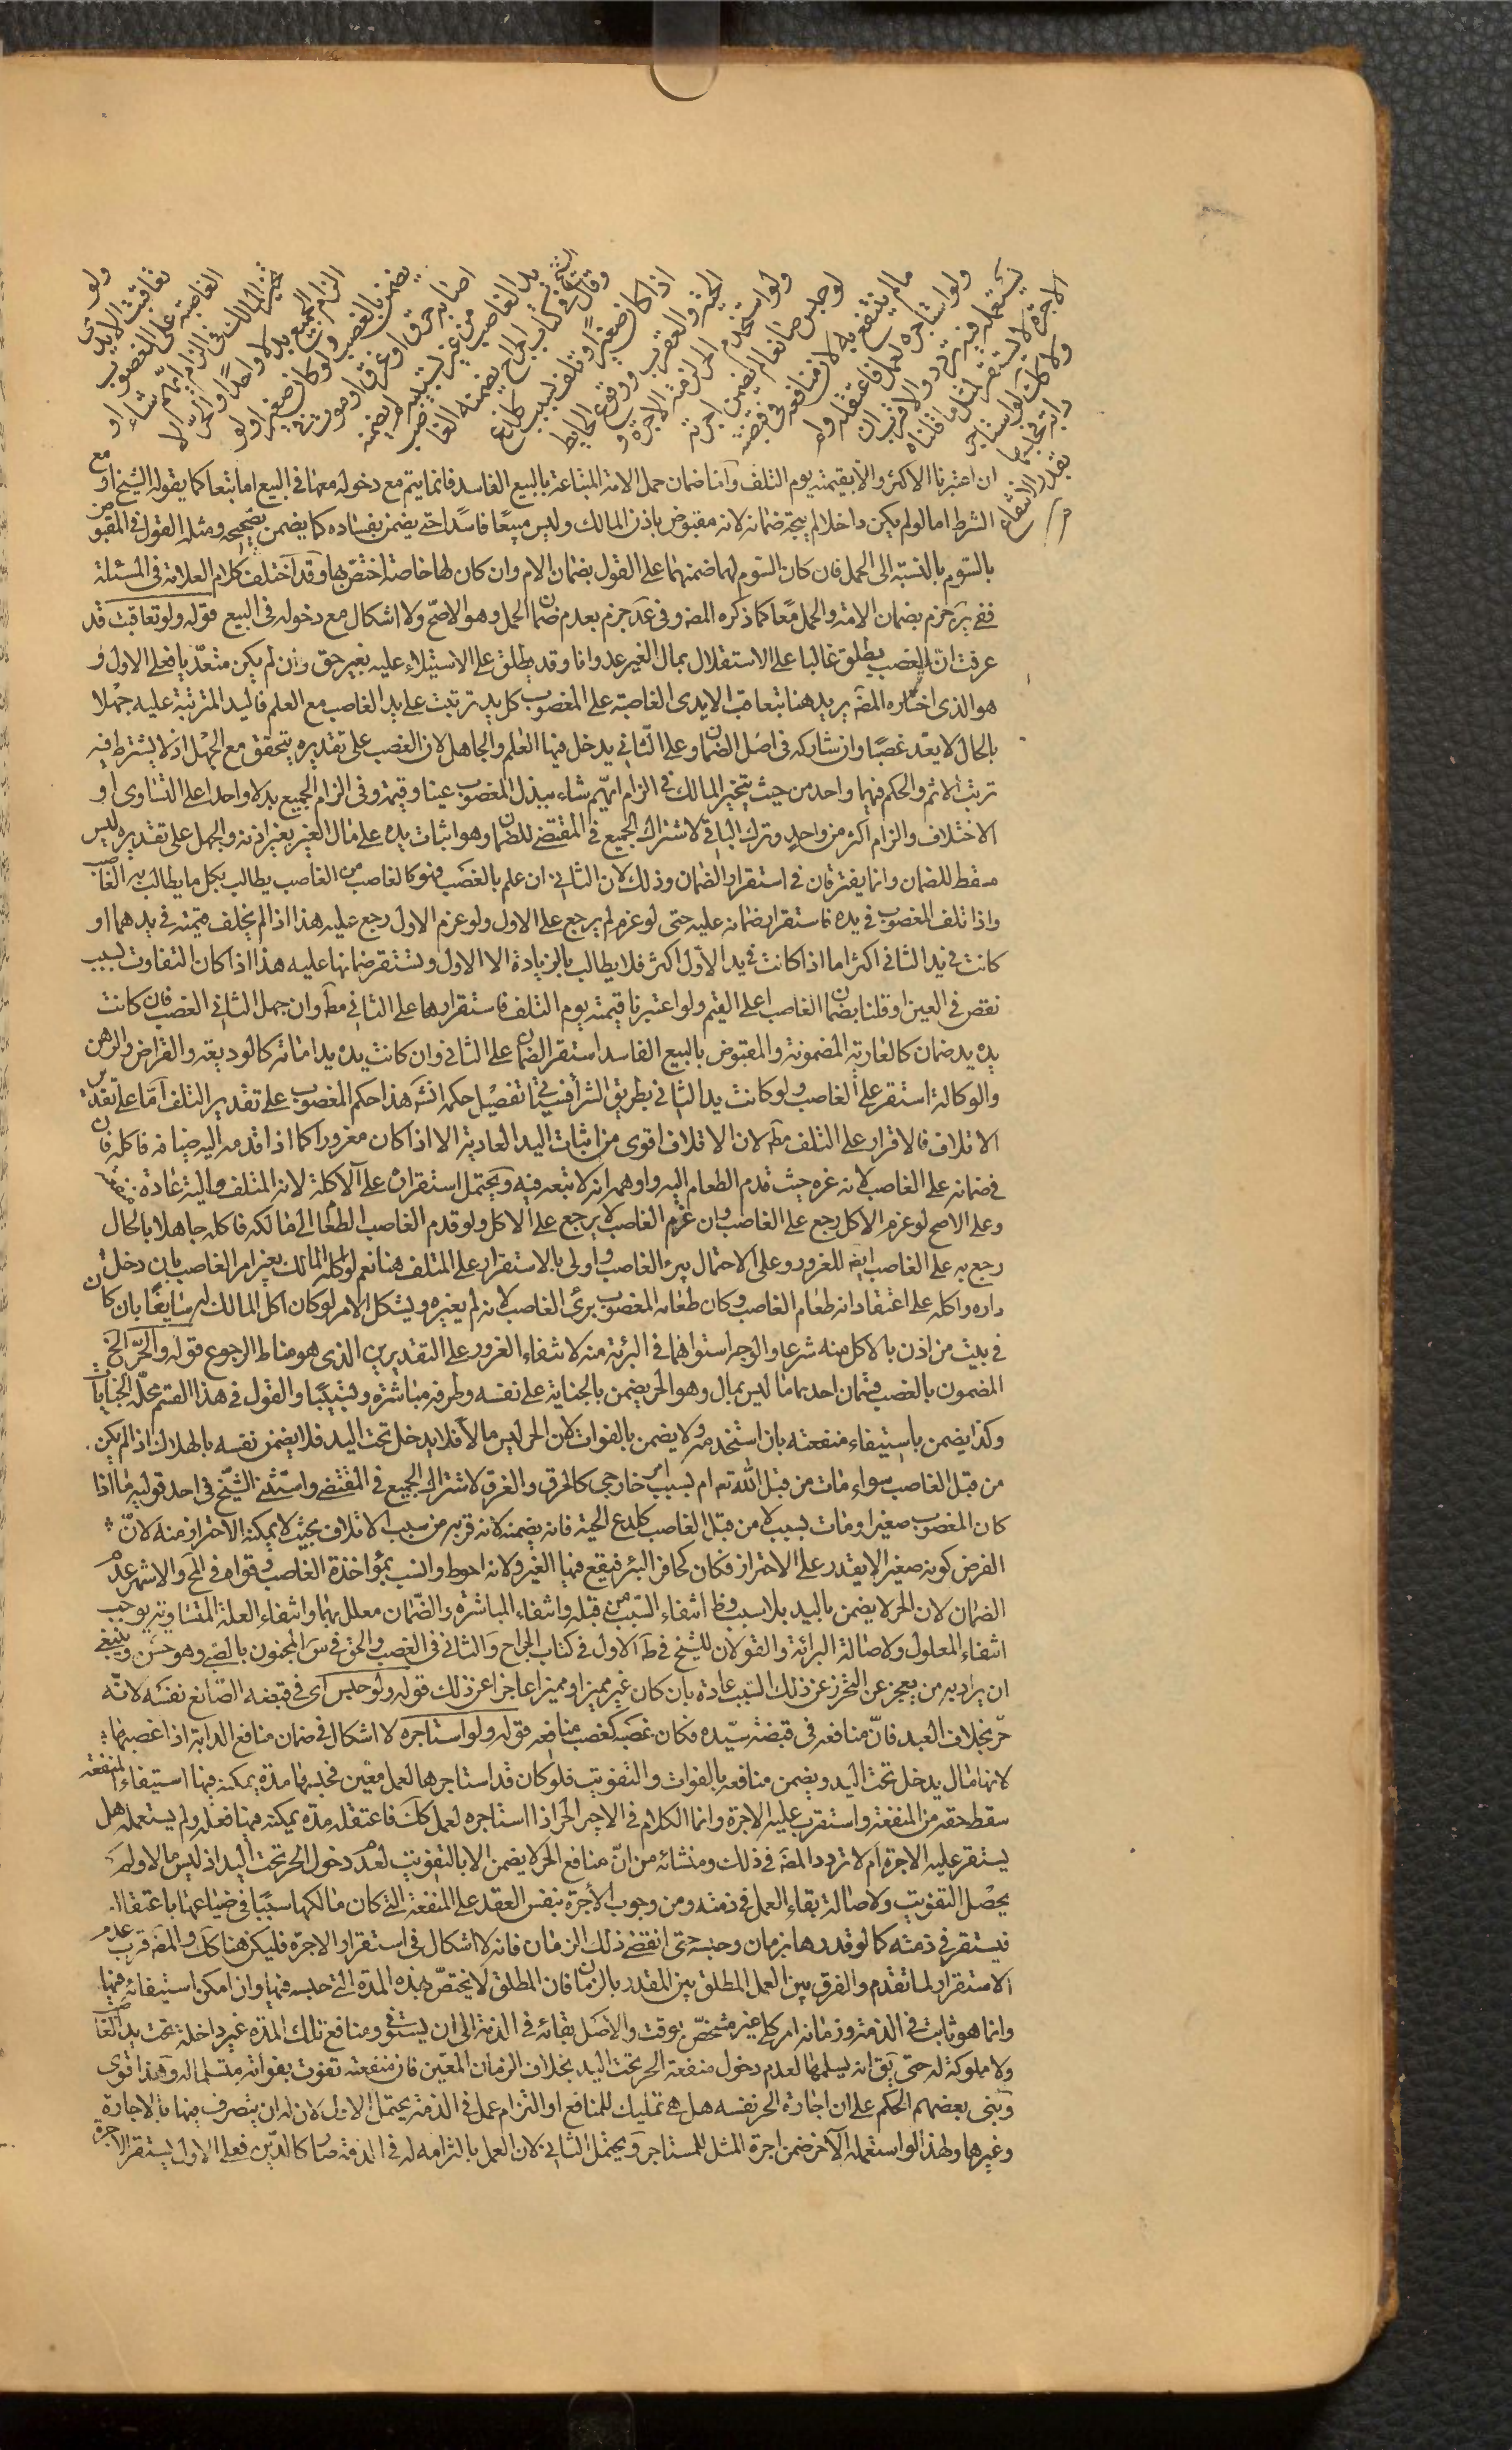 ولو تعاقبت الايدي
الغاصبة على المغصوب
تخير المالك في الزام ايهم شاء او
الزام الجميع بدلا واحدا والحر لا
يضمن بالغصب ولو كان صغيرا ولو
اصابه حرق او غرق او موت في
يد الغاصب من غير تسبيبه لم يضمنه
وقال الشيخ في كتاب الجراح يضمنه الغاصب
اذا كان صغيرا وتلف بسبب كلدغ
الحية والعقرب ووقوع الحايط
ولو استخدم الحر لزمته الاجرة و
لو حبس صانعا لم يضمن اجرته
مالم ينتفع به لان منافعه في قبضته
ولو استاجره لعمل فاعتقله ولم
يستعمله فيه تردد والاقرب ان
الاجرة لا تستقر لمثل ما قلناه
ولا كك لو استاجر
دابة فحبسها
بقدر الانتفاع
ان اعتبرنا الاكثر والا بقيمته يوم التلف واما ضمان حمل الامة المبتاعة بالبيع الفاسد فانما يتم مع دخوله معها في البيع اما تبعا كما يقوله الشيخ او مع
الشرط اما لو لم يكن داخلا لم يتجه ضمانه لانه مقبوض باذن المالك وليس مبيعا فاسدا حتى يضمن بفساده كما يضمن بصحيحه ومثله القول في المقبوض
بالسوم بالنسبة الى الحمل فان كان السوم لهما ضمنهما على القول بضمان الام وان كان لها خاصة اختص بها وقد اختلف كلام العلامة في المسئلة
ففي ير جزم بضمان الامة والحمل معا كما ذكره المصه وفي عد جزم بعدم ضمان الحمل وهو الاصح ولا اشكال مع دخوله في البيع قوله ولو تعاقبت قد
عرفت ان الغصب يطلق غالبا على الاستقلال بمال الغير عدوانا وقد يطلق على الاستيلاء عليه بغير حق وان لم يكن متعديا فعلى الاول و
هو الذي اختاره المصه يريد هنا بتعاقب الايدي الغاصبة على المغصوب كل يد ترتبت على يد الغاصب مع العلم فاليد المترتبة عليه جهلا
بالحال لا يعد غصبا وان شاركه في اصل الضمان وعلى الثاني يدخل فيها العلم والجاهل لان الغصب على تقديره يتحقق مع الجهل اذ لا يشترط فيه
ترتب الاثم والحكم فيهما واحد من حيث يتخير المالك في الزام ايهم شاء ببذل المغصوب عينا وقيمة وفي الزام الجميع بدلا واحدا على التساوي او
الاختلاف والزام اكثر من واحد وترك الباقي لاشتراك الجميع في المقتضي للضمان وهو اثبات يده على مال الغير بغير اذنه والجهل على تقديره ليس
مسقط للضمان وانما يفترقان في استقرار الضمان وذلك لان الثاني ان علم بالغصب فهو كالغاصب من الغاصب يطالب بكل ما يطالب به الغاصب
واذا تلف المغصوب في يده فاستقرار ضمانه عليه حتى لو غرم لم يرجع على الاول ولو غرم الاول رجع عليه هذا اذا لم يختلف قيمته في يدهما او
كانت في يد الثاني اكثر اما اذا كانت في يد الاول اكثر فلا يطالب بالزيادة الا الاول وتستقر ضمانها عليه هذا اذا كان التفاوت بسبب
نقص في العين او قلنا بضمان الغاصب اعلى القيم ولو اعتبرنا قيمته يوم التلف فاستقرارها على الثاني مط وان جهل الثاني الغصب فان كانت
يده يد ضمان كالعارية المضمونة والمقبوض بالبيع الفاسد استقر الضمان على الثاني وان كانت يده يد امانة كالوديعة والقراض والرهن
والوكالة استقر على الغاصب ولو كانت يد الثاني بطريق الشرا فسياتي تفصيل حكمه انش هذا حكم المغصوب على تقدير التلف اما على تقدير
الاتلاف فالاقرار على التلف مط لان الاتلاف اقوى من اثبات اليد العادية الا اذا كان مغرورا كما اذا قدمه اليه ضيافة فاكله فان
في ضمانه على الغاصب لانه غره حيث قدم الطعام اليه واوهمه انه لا تبعه فيه ويحتمل استقراره على الآكل لانه المتلف واليه عادة منفعته
وعلى الاصح لو غرم الاكل رجع على الغاصب وان غرم الغاصب لا يرجع على الاكل ولو قدم الغاصب الطعام الى مالكه فاكله جاهلا بالحال
رجع به على الغاصب ايض للغرور وعلى الاحتمال يبرء الغاصب واولى بالاستقرار على المتلف هنا نعم لو اكله المالك بغير امر الغاصب بان دخل
داره واكله على اعتقاد انه طعام الغاصب وكان طعامه المغصوب برئ الغاصب لانه لم يغره ويشكل الامر لو كان اكل المالك له سايغا بان كان
في بيت من اذن بالاكل منه شرعا والوجه استواهما في البرئة منه لانتفاء الغرور على التقديرين الذي هو مناط الرجوع قوله والحر الخ
المضمون بالغصب قسمان احدهما ما ليس بمال وهو الحر يضمن بالجناية على نفسه وطرفه مباشرة وتسبيبا والقول في هذا القسم محله الجنايات
وكذا يضمن باستيفاء منفعته بان استخدمه ولا يضمن بالفوات لان الحر ليس مالا فلا يدخل تحت اليد فلا يضمن نفسه بالهلاك اذا لم يكن
من قبل الغاصب سواء مات من قبل الله تع ام بسبب امر خارجي كالحرق والغرق لاشتراك الجميع في المقتضي واستثنى الشيخ في احد قوليه ما اذا
كان المغصوب صغيرا ومات بسبب لا من قبل الغاصب كلدغ الحية فانه يضمنه لانه قربه من سبب الاتلاف بحيث لا يمكنه الاحتراز منه لان
الفرض كونه صغيرا لا يقدر على الاحتراز فكان كحافر البئر فيقع فيها الغير ولانه احوط وانسب بمؤاخذة الغاصب وقواه في لخ والاشهر عدم
الضمان لان الحر لا يضمن باليد بلا سبب وظ انتفاء السبب من قبله وانتفاء المباشرة والضمان معلل بهما وانتفاء العلة المتساوية يوجب
انتفاء المعلول ولاصالة البرائة والقولان للشيخ في ط الاول في كتاب الجراح والثاني في الغصب والحق في س المجنون بالصبي وهو حسن وينبغي
ان يراد به من يعجز عن التحرز عن ذلك السبب عادة بان كان غير مميز او مميزا عاجزا عن ذلك قوله ولو حبس اى في قبضه الصانع نفسه لانه
حر بخلاف العبد فان منافعه في قبضة سيده فكان غصبه كغصب منافعه قوله ولو استاجره لا اشكال في ضمان منافع الدابة اذا غصبها
لانها مال يدخل تحت اليد ويضمن منافعه بالفوات والتفويت فلو كان قد استاجرها لعمل معين فحبسها مدة يمكنه فيها استيفاء المنفعة
سقط حقه من المنفعة واستقرت عليه الاجرة وانما الكلام في الاجير الحر اذا استاجره لعمل كك فاعتقله مدة يمكنه فيها فعله ولم يستعمله هل
يستقر عليه الاجرة ام لا تردد المصه في ذلك ومنشائه من ان منافع الحر لا يضمن الا بالتفويت لعدم دخول الحر تحت اليد اذ ليس مالا ولم
يحصل التفويت ولاصالة بقاء العمل في ذمته ومن وجوب الأجرة بنفس العقد على المنفعة التي كان مالكها سببا في ضياعها باعتقاله
فيستقر في ذمته كما لو قدرها بزمان وحبسه حتى انقضى ذلك الزمان فانه لا اشكال في استقرار الاجرة فليكن هنا كك والمصه قرب عدم
الاستقرار لما تقدم والفرق بين العمل المطلق بين المقدر بالزمان فان المطلق لا يختص بهذه المدة التي حبسه فيها وان امكن استيفائه فيها
وانما هو ثابت في الذمة وزمانه امر كلي غير مشخص بوقت والاصل بقائه في الذمة الى ان يستوفي ومنافع تلك المدة غير داخلة تحت يد الغاصب
ولا مملوكة له حتى يق انه يسلمها لعدم دخول منفعة الحر تحت اليد بخلاف الزمان المعين فان منفعته تفوت بفواته متسلما له وهذا قوى
وبنى بعضهم الحكم على ان اجارة الحر نفسه هل هي تمليك للمنافع او التزام عمل في الذمة يحتمل الاول لان له ان يتصرف فيها بالاجارة
وغيرها ولهذا لو استعمله الآخر ضمن اجرة المثل للمستاجر ويحتمل الثاني لان العمل بالتزامه له في الذمة صار كالدين فعلى الاول يستقر الاجرة